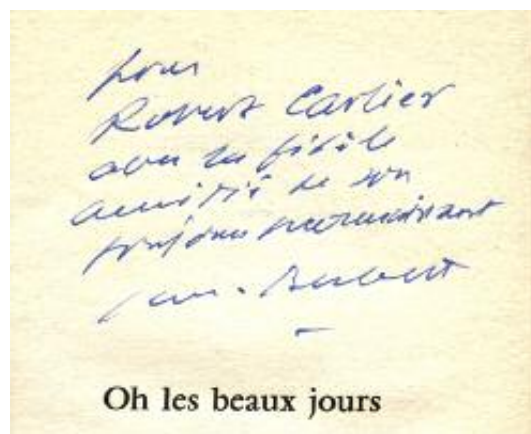 pour
Robert Carlier
avec la fidèle
amitié de son
toujours reconnaissant
Oh les beaux jours